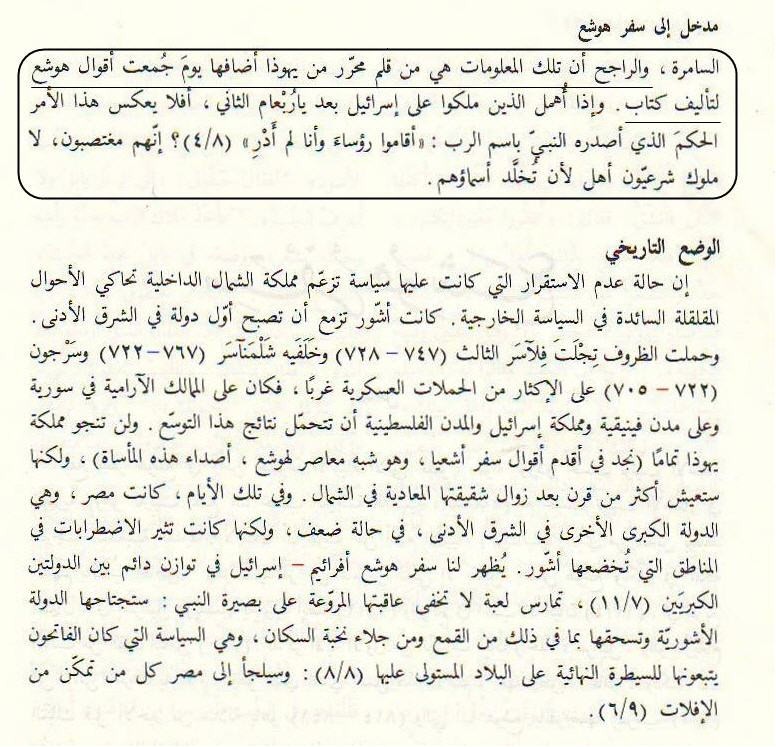 مدخل إلى سفر هوشع
السامرة ، والراجح أن تلك المعلومات هي من قلم محرّر من يهوذا أضافها يومَ جُمعت أقوال هوشع
لتأليف كتاب . وإذا أُهمل الذين ملكوا على إسرائيل بعد ياربْعام الثاني ، أفلا يعكس هذا الأمر
الحكمَ الذي أصدره النبيّ باسم الرب : «أقاموا رؤساءَ وأنا لم أَدْرِ» (٤/٨)؟ إنّهم مغتصبون، لا
ملوك شرعيّون أهل لأن تُخلَّد أسماؤهم.
الوضع التاريخي
إن حالة عدم الاستقرار التي كانت عليها سياسة تزعّم مملكة الشمال الداخلية تحاكي الأحوال
المقلقلة السائدة في السياسة الخارجية . كانت أشّور تزمع أن تصبح أوّل دولة في الشرق الأدنى .
وحملت الظروف تِجْلَتَ فِلآسَر الثالث (٧٤٧ – ٧٢٨) وخَلَفَيه شَلْمَنآسَر (٧٦٧–٧٢٢) وسَرْجون
(٧٢٢ – ٧٠٥) على الإكثار من الحملات العسكرية غربًا ، فكان على الممالك الآرامية في سورية
وعلى مدن فينيقية ومملكة إسرائيل والمدن الفلسطينية أن تتحمّل نتائج هذا التوسّع . ولن تنجو مملكة
يهوذا تمامًا (نجد في أقدم أقوال سفر أشعيا ، وهو شبه معاصر لهوشع ، أصداء هذه المأساة) ، ولكنها
ستعيش أكثر من قرن بعد زوال شقيقتها المعادية في الشمال. وفي تلك الأيام ، كانت مصر ، وهي
الدولة الكبرى الأخرى في الشرق الأدنى ، في حالة ضعف ، ولكنها كانت تثير الاضطرابات في
المناطق التي تُخضعها أشّور. يُظهر لنا سفر هوشع أفرائيم – إسرائيل في توازن دائم بين الدولتين
الكبريَين (١١/٧) ، تمارس لعبة لا تخفى عاقبتها المروّعة على بصيرة النبي : ستجتاحها الدولة
الأشوريّة وتسحقها بما في ذلك من القمع ومن جلاء نخبة السكان ، وهي السياسة التي كان الفاتحون
يتبعونها للسيطرة النهائية على البلاد المستولى عليها (٨/٨) : وسيلجأ إلى مصر كل من تمكّن من
الإفلات (٦/٩).